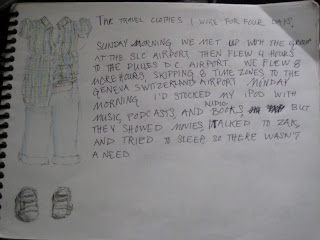 The travel clothes I wore for four days.
Sunday morning we met up with the group
at the SLC airport, then flew 4 hours
to the Dulles D.C. airport. We flew 8
more hours, skipping 8 time zones to the
Geneva Switzerland airport Monday
morning. I'd stocked my iPod with
music, podcasts, and audio books, but
they showed movies, I talked to Zak,
and tried to sleep, so there wasn't
a need.